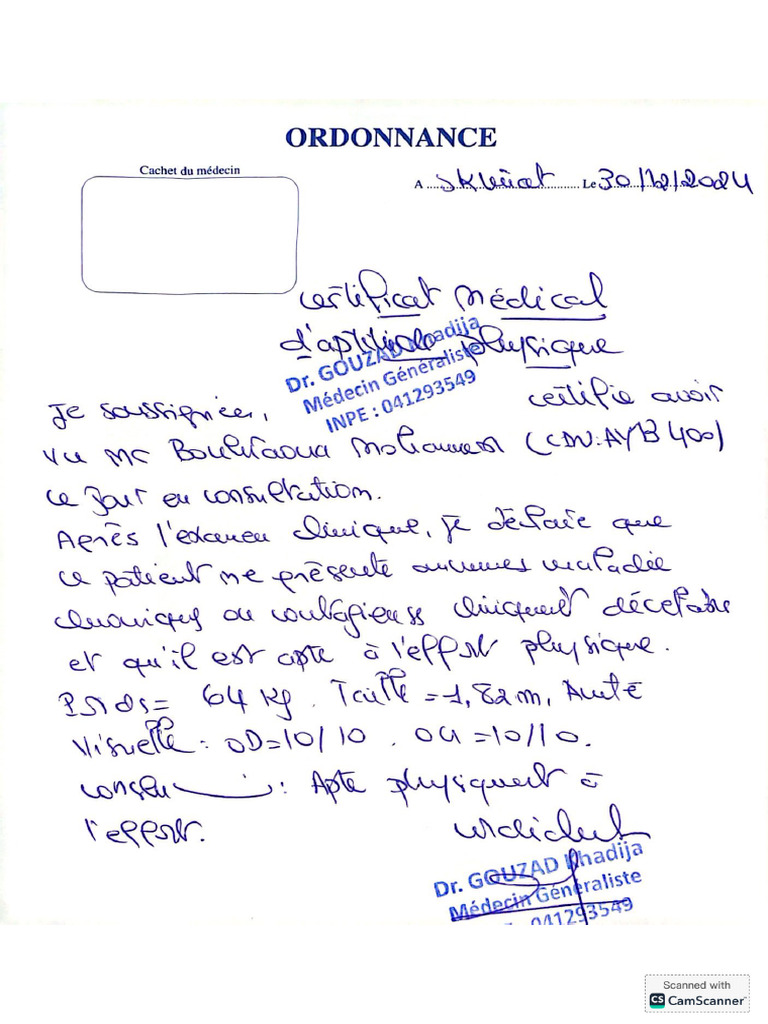 ORDONNANCE
Cachet du médecin
A Skhirat Le 30/12/2024
certificat Médical
d'aptitude physique
Dr. GOUZAD Khadija
Médecin Généraliste
INPE : 041293549
Je soussignée, certifie avoir
vu Mr Mohamed (CIN: AYB 400)
ce jour en consultation.
Après l'examen clinique, je déclare que
ce patient ne présente aucunes maladie
chroniques ou contagieuses cliniquement décelable
et qu'il est apte à l'effort physique.
Poids = 64 Kg. Taille = 1,82 m, Acuité
Visuelle : OD=10/10 . OG =10/10.
conclusion : Apte physiquement à
l'effort.
Dr. GOUZAD Khadija
Médecin Généraliste
041293549
Scanned with
CS CamScanner